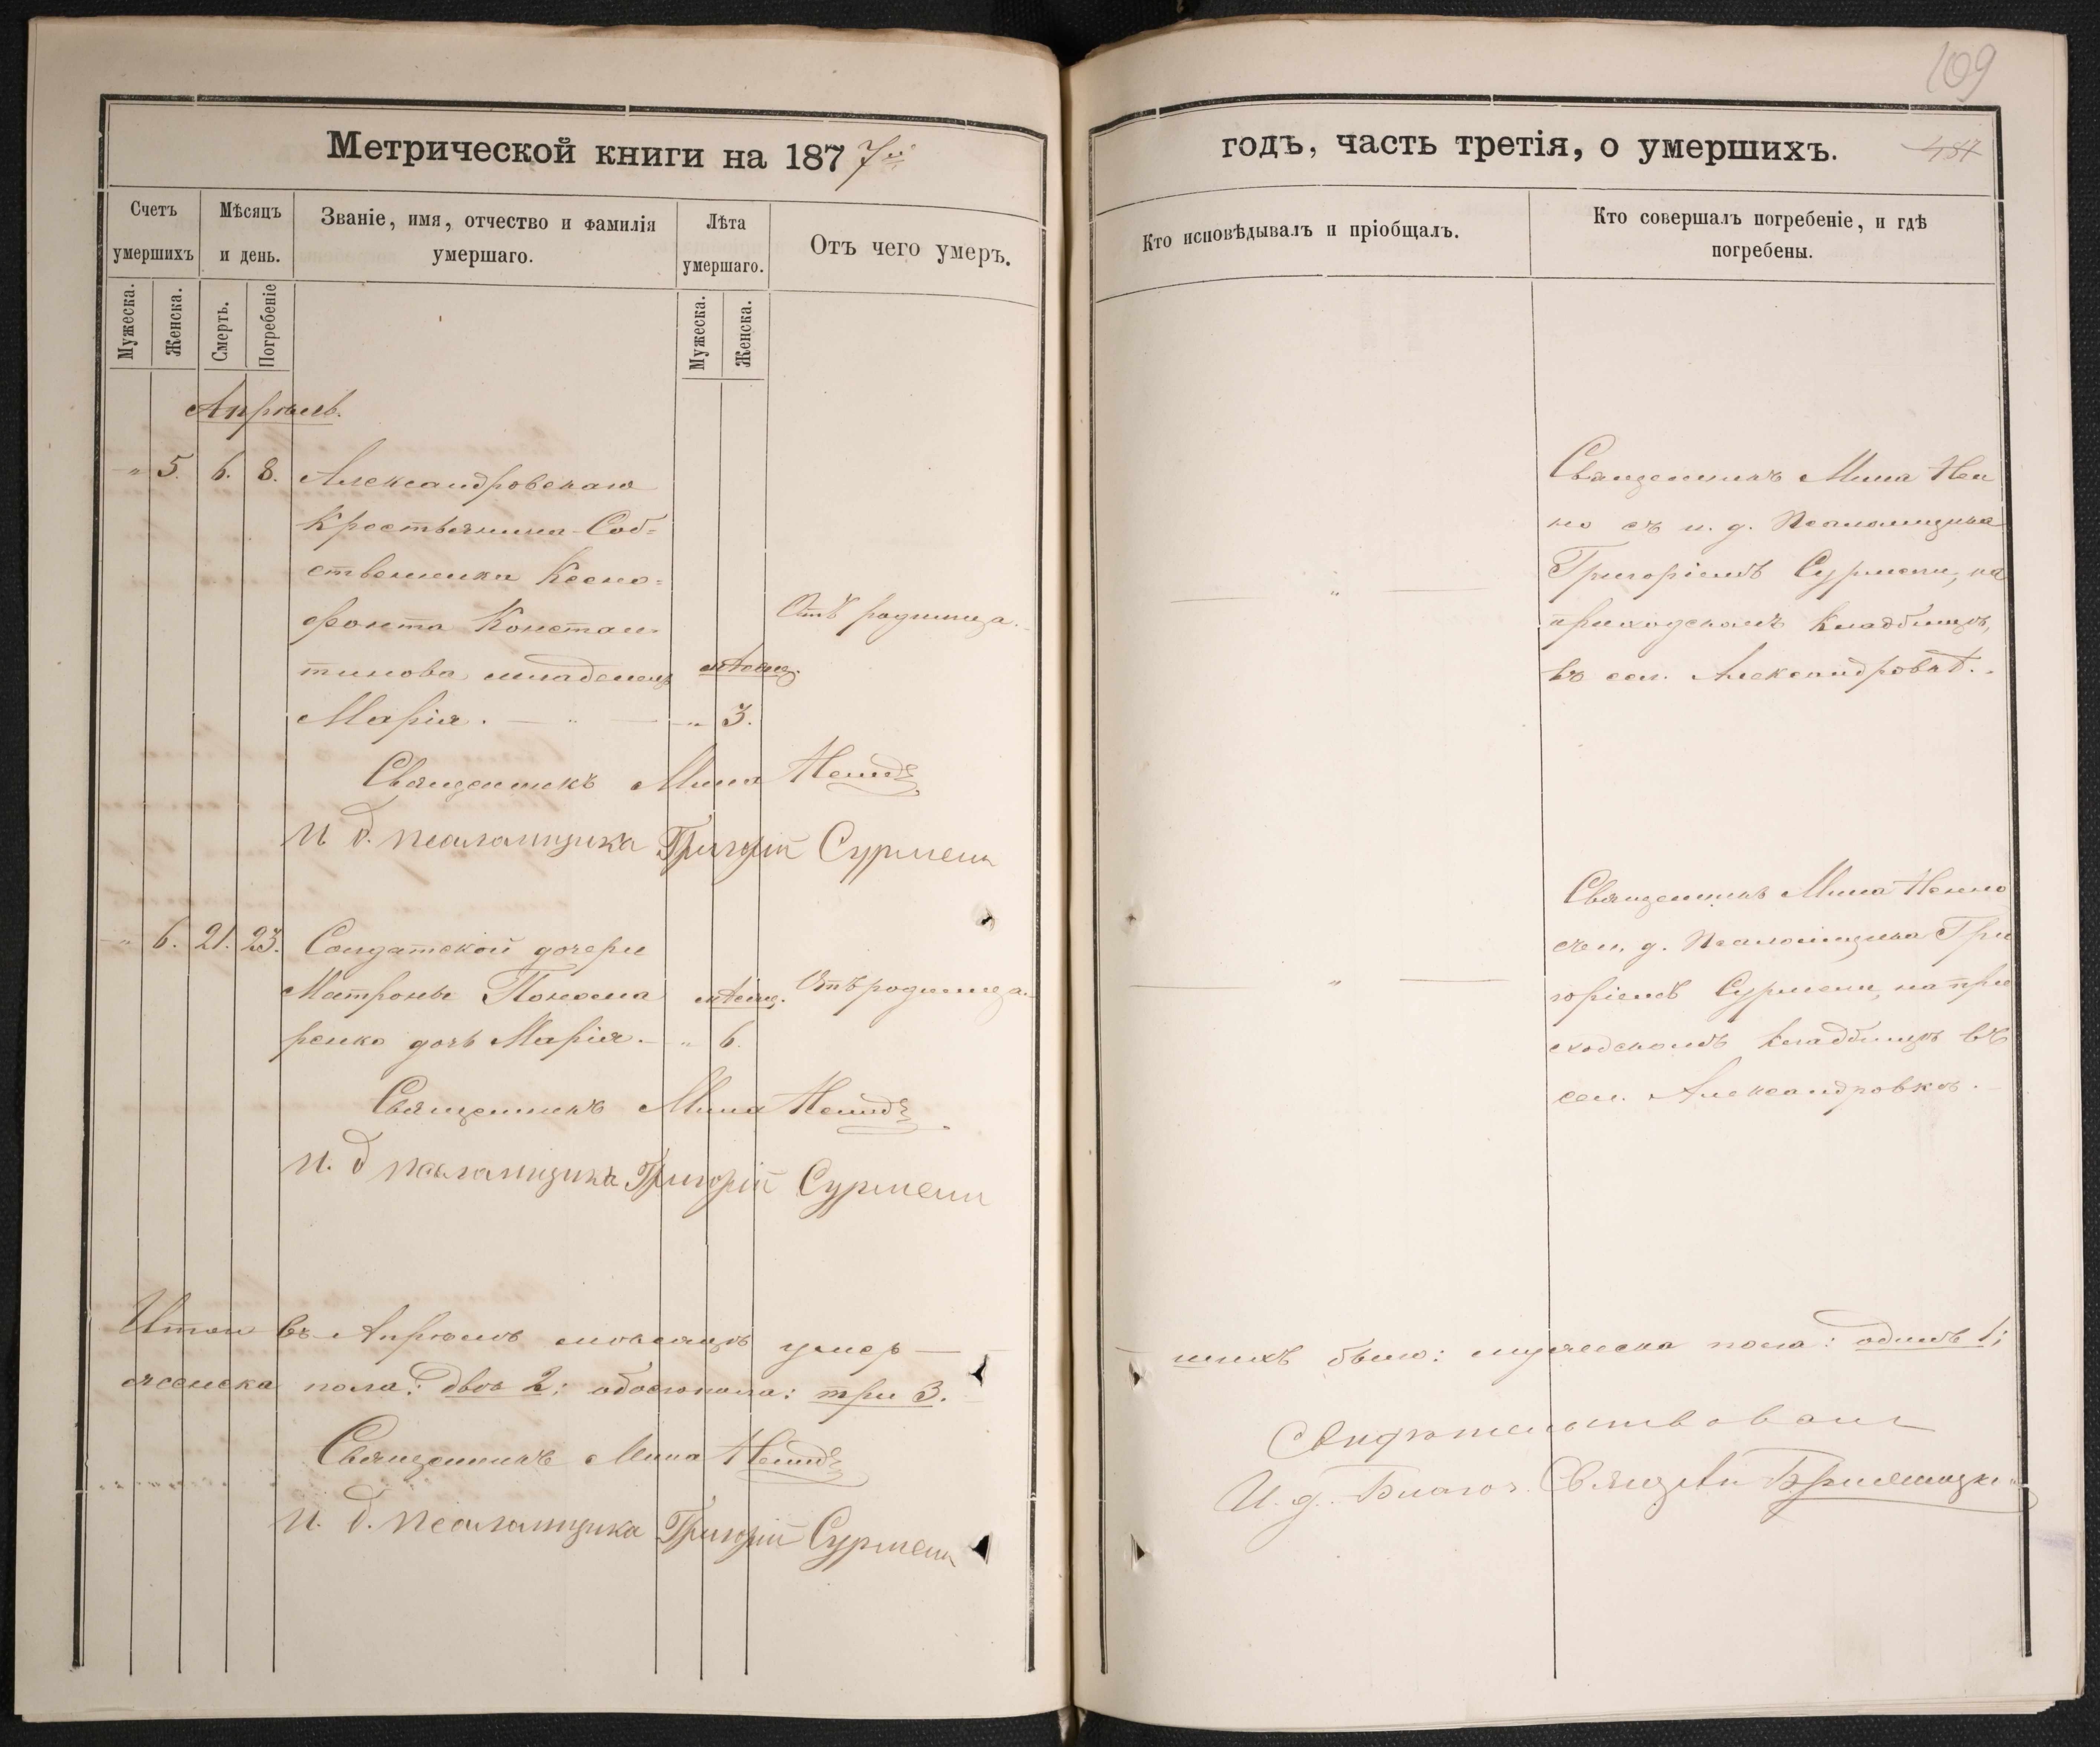 109
Метрической книги на 1877й
годъ, часть третія, о умершихъ.
Счетъ умершихъ
Мѣсяцъ и день.
Званіе, имя, отчество и фамилія умершаго.
Лѣта умершаго.
Отъ чего умеръ.
Кто исповѣдывалъ и пріобщалъ.
Кто совершалъ погребеніе, и гдѣ погребены.
Мужеска.
Женска.
Смерть.
Погребеніе
Мужеска.
Женска.
Апрѣль.
„ 5. 6. 8. Александровскаго
крестьянина Соб=
ственника Ксено=
фонта Констан=
тинова младенец
Марія. „
мѣсяц.
„ 3.
Отъ родимца.
„
Священникъ Мина Нен
но съ и. д. Псаломщика
Григоріемъ Сурмени, на
приходскомъ кладбищѣ,
въ сел. Александровкѣ.
Священникъ Мина
И. д. псаломщика Григорій Сурмени
„ 6. 21. 23. Солдатской дочери
Матроны Понома
ренко дочь Марія.
мѣсяц.
„ 6.
Отъ родимца.
„
Священникъ Мина Ненно
съ и. д. Псаломщика Гри
горіемъ Сурмени, на при
ходскомъ кладбищѣ въ
сел. Александровкѣ.
Священникъ Мина
И. д псаломщика Григорій Сурмени
Итого въ Апрѣлѣ мѣсяцѣ умер
шихъ было: мужеска пола: одинъ 1;
женска пола: двѣ 2; обоего пола: три 3.
Священникъ Мина
И. д. псаломщика Григорій Сурмени
Свидѣтельствовалъ
И. д. Благоч. Свящ.